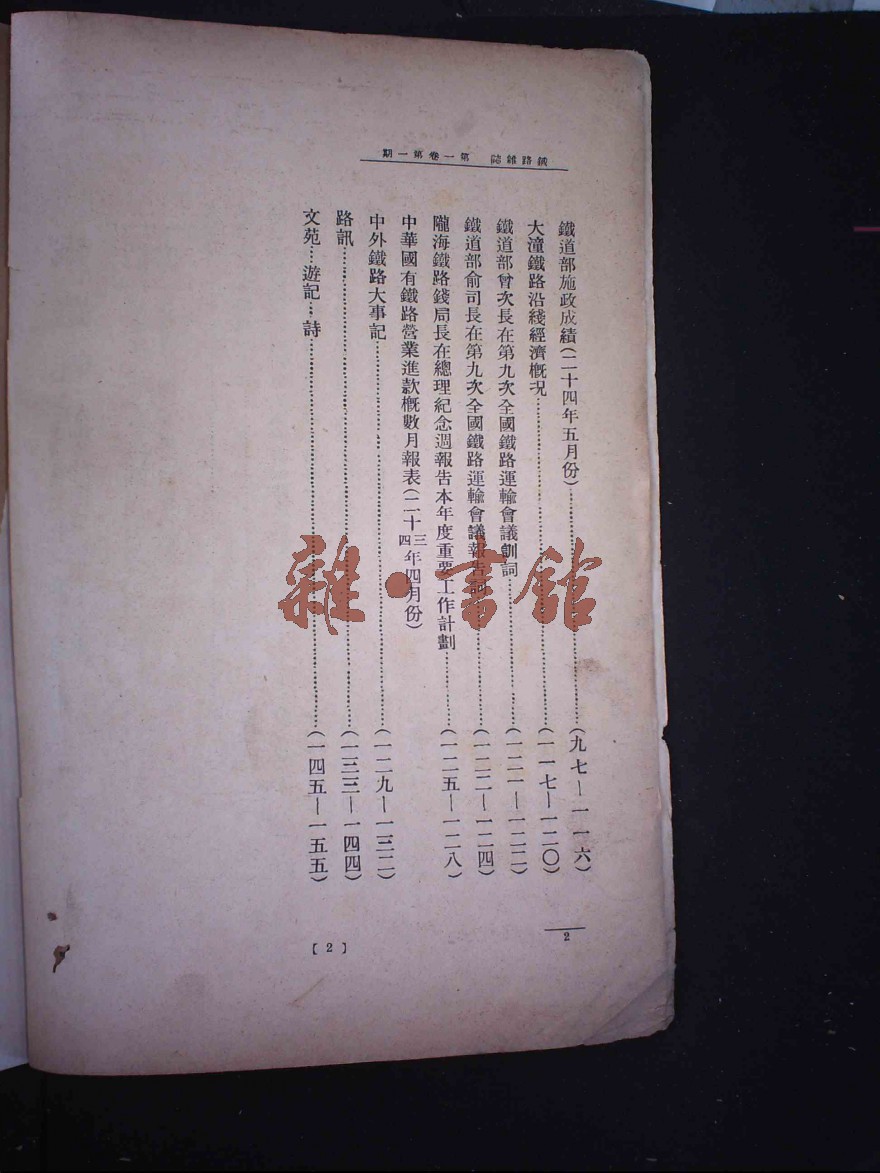 鐵路雜誌　第一卷第一期
鐵道部施政成績(二十四年五月份)……(九七—一一六)
大潼鐵路沿綫經濟槪况……(一一七—一二〇)
鐵道部曾次長在第九次全國鐵路運輸會議訓詞……(一二一—一二二)
鐵道部俞司長在第九次全國鐵路運輸會議報告詞……(一二二—一二四)
隴海鐵路錢局長在總理紀念週報告本年度重要工作計劃……(一二五—一二八)
中華國有鐵路營業進款槪數月報表(二十三四年四月份)
中外鐵路大事記……(一二九—一三二)
路訊……(一三三—一四四)
文苑…遊記…詩……(一四五—一五五)
2
[2]
雜·書館